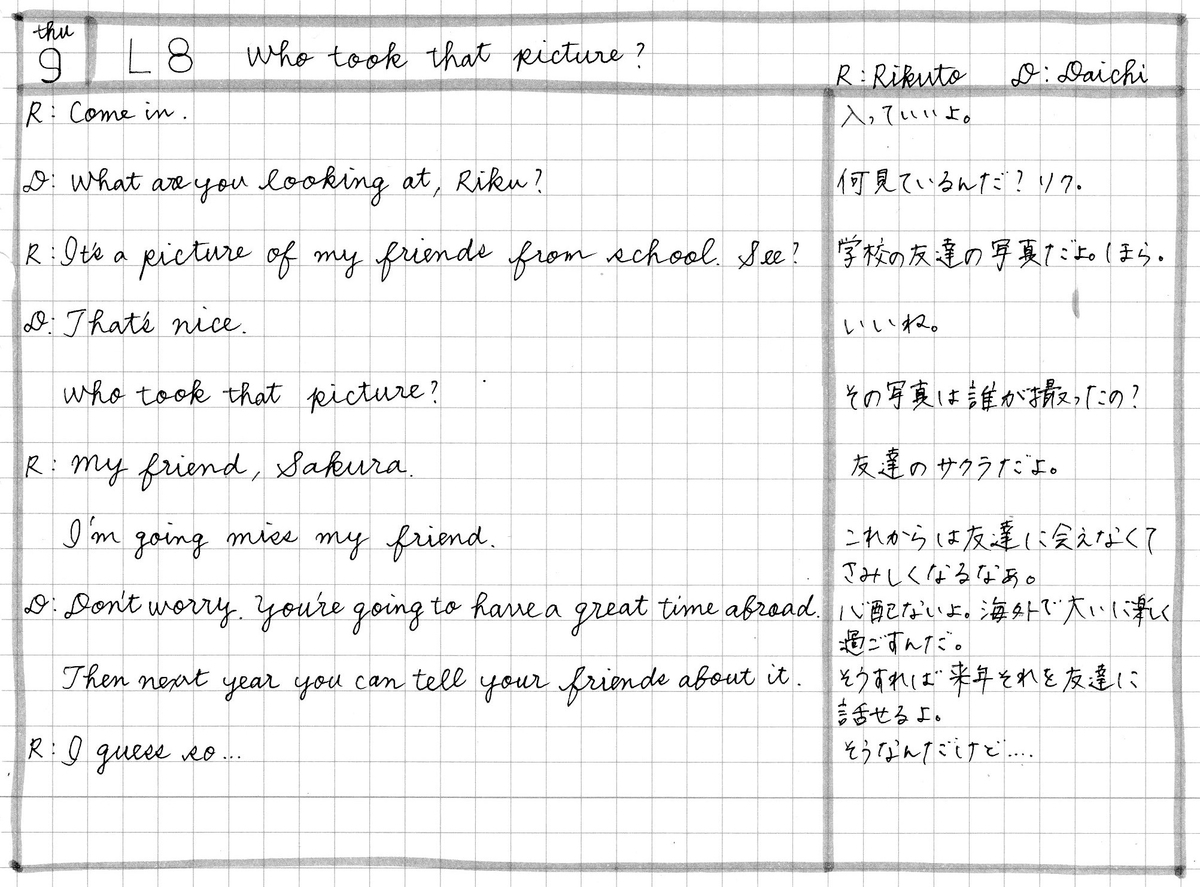 thu
9 L8 Who took that picture?
R: Rikuto D: Daichi
R: Come in.
入っていいよ。
D: What are you looking at, Riku?
何見ているんだ?リク。
R: It's a picture of my friends from school. See?
学校の友達の写真だよ。ほら。
D: That's nice.
いいね。
Who took that picture?
その写真は誰が撮ったの?
R: My friend, Sakura.
友達のサクラだよ。
I'm going miss my friend.
これからは友達に会えなくて
さみしくなるなぁ。
D: Don't worry. You're going to have a great time abroad.
心配ないよ。海外で大いに楽しく
過ごすんだ。
Then next year you can tell your friends about it.
そうすれば来年それを友達に
話せるよ。
R: I guess so...
そうなんだけど....